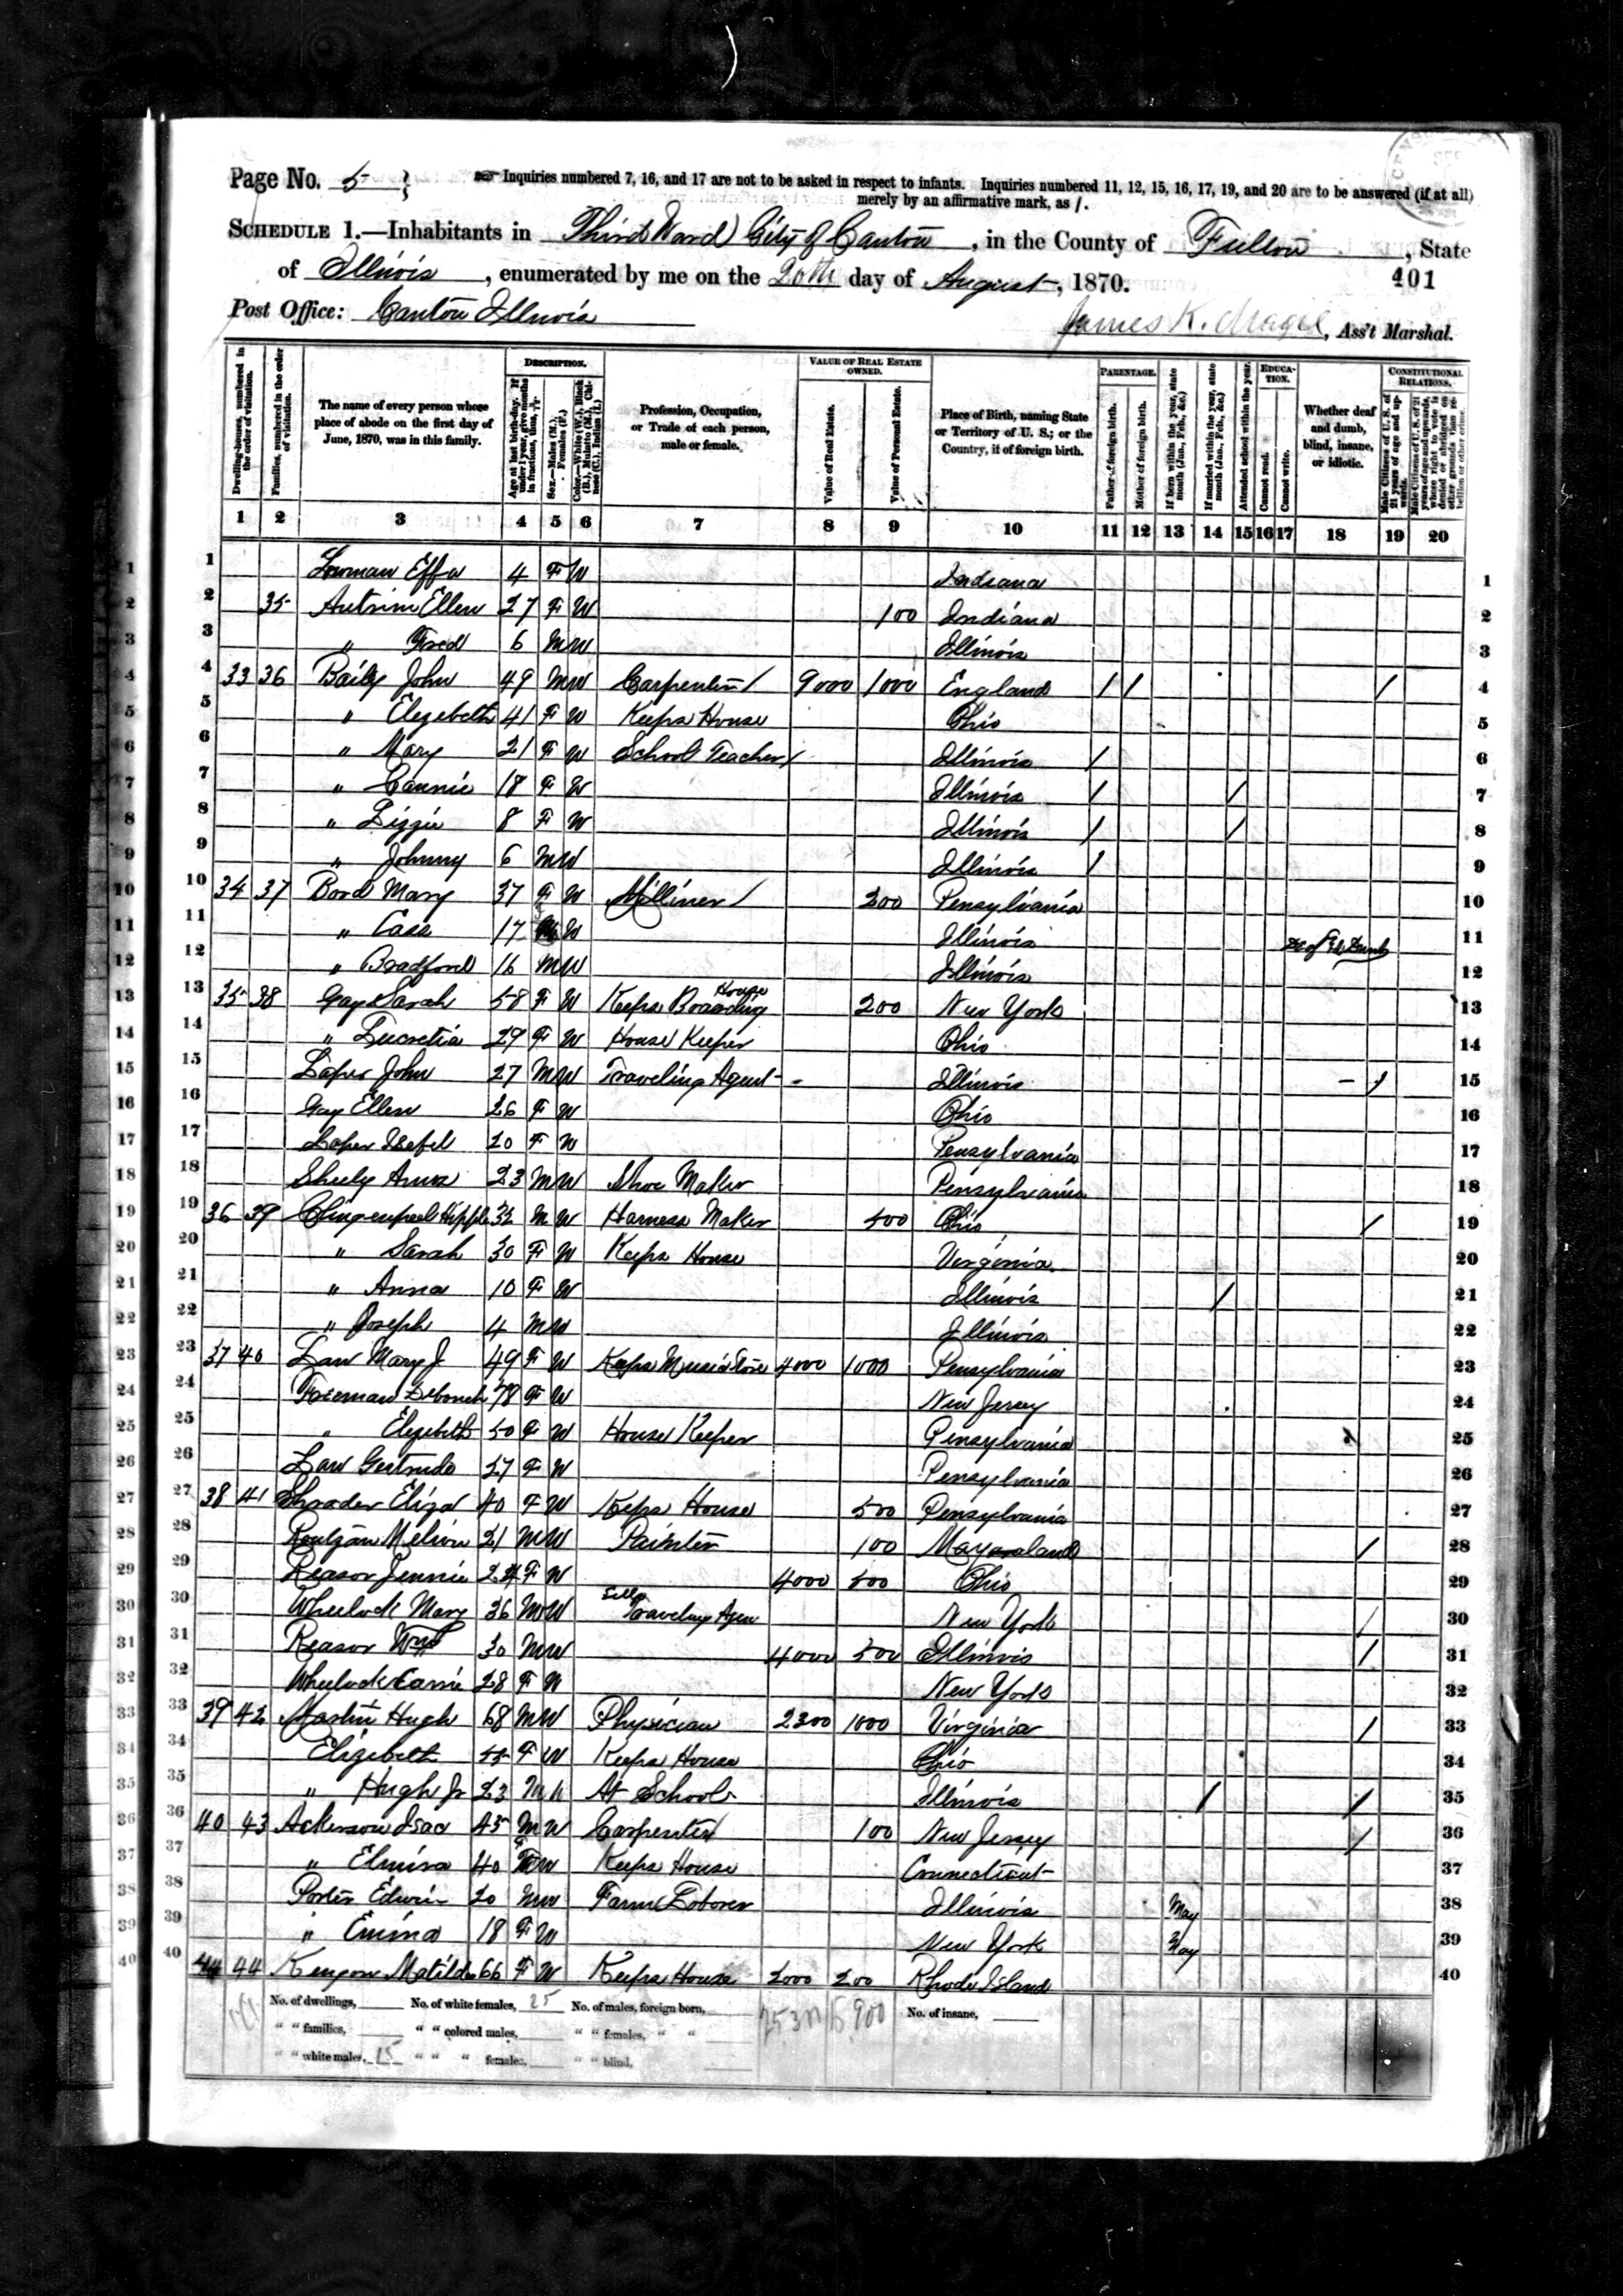 Page No. 5
Inquiries numbered 7, 16, and 17 are not to be asked in respect to infants. Inquiries numbered 11, 12, 15, 16, 17, 19, and 20 are to be answered (if at all)
merely by an affirmative mark, as /.
SCHEDULE 1.—Inhabitants in Third Ward City of Canton, in the County of Fulton, State
of Illinois, enumerated by me on the 20th day of August, 1870.
401
Post Office: Canton Illinois
James K. Magee, Ass't Marshal.
Dwelling-houses, numbered in the order of visitation.
Families, numbered in the order of visitation.
The name of every person whose place of abode on the first day of June, 1870, was in this family.
DESCRIPTION.
Age at last birth-day. If under 1 year, give months in fractions, thus, 3/12.
Sex.—Males (M.), Females (F.)
Color.—White (W.), Black (B.), Mulatto (M.), Chinese (C.), Indian (I.)
Profession, Occupation, or Trade of each person, male or female.
VALUE OF REAL ESTATE OWNED.
Value of Real Estate.
Value of Personal Estate.
Place of Birth, naming State or Territory of U. S.; or the Country, if of foreign birth.
PARENTAGE.
Father of foreign birth.
Mother of foreign birth.
If born within the year, state month (Jan., Feb., &c.)
If married within the year, state month (Jan., Feb., &c.)
Attended school within the year.
EDUCATION.
Cannot read.
Cannot write.
Whether deaf and dumb, blind, insane, or idiotic.
CONSTITUTIONAL RELATIONS.
Male Citizens of U. S. of 21 years of age and upwards.
Male Citizens of U. S. of 21 years of age and upwards, where right to vote is denied or abridged on other grounds than rebellion or other crime.
1 2 3 4 5 6 7 8 9 10 11 12 13 14 15 16 17 18 19 20
1 Effa 4 F W Indiana 1
2 35 Antrim Ellen 27 F W 100 Indiana 2
3 " Fred 6 M W Illinois 3
4 33 36 Baily John 49 M W Carpenter / 9000 1000 England / / / 4
5 " Elezebeth 41 F W Keeps House Ohio 5
6 " Mary 21 F W School Teacher / Illinois / 6
7 " Cannie 18 F W Illinois / / 7
8 " Lizzie 8 F W Illinois / / 8
9 " Johnny 6 M W Illinois / 9
10 34 37 Bord Mary 37 F W Milliner / 200 Pensylvania 10
11 " Cass 17 M W Illinois Deaf & Dumb 11
12 " Bradford 16 M W Illinois 12
13 35 38 Gay Sarah 58 F W Keeps Boarding House 200 New York 13
14 " Lucretia 29 F W House Keeper Ohio 14
15 Loper John 27 M W Traveling Agent Illinois / 15
16 Gay Ellen 26 F W Ohio 16
17 Loper 20 F W Pensylvania 17
18 Sheely 23 M W Shoe Maker Pensylvania 18
19 36 39 32 M W Harness Maker 500 Ohio / 19
20 " Sarah 30 F W Keeps House Virginia 20
21 " Anna 10 F W Illinois / 21
22 " Joseph 4 M W Illinois 22
23 37 40 Law Mary J 49 F W Keeps Music Store 4000 1000 Pensylvania 23
24 Freeman Deborah 78 F W New Jersey 24
25 " Elezebeth 50 F W House Keeper Pensylvania 25
26 Law Gertrude 27 F W Pensylvania 26
27 38 41 Shrader Eliza 40 F W Keeps House 500 Pensylvania 27
28 21 M W Painter 100 Mayaraland / 28
29 Reasor Jennie 24 F W 4000 500 Ohio 29
30 Wheelock Mary 36 M W Traveling Agen New York / 30
31 Reasor Wm 30 M W 4000 500 Illinois / 31
32 Wheelock Carrie 28 F W New York 32
33 39 42 Martin Hugh 68 M W Physician 2300 1000 Virginia / 33
34 Elizibeth 55 F W Keeps House Ohio 34
35 " Hugh Jr 23 M W At School Illinois / / 35
36 40 43 Ackerson Isac 45 M W Carpenter 100 New Jersey / 36
37 " Elmira 40 F W Keeps House Connecticut 37
38 Porter Edwin 20 M W Farm Laborer Illinois May 38
39 " Emma 18 F W New York May 39
40 44 Kenyon Matilda 66 F W Keeps House 2000 200 Rhode Island 40
No. of dwellings, No. of white females, 25 No. of males, foreign born, No. of insane,
" " families, " " colored males, " " females, " "
" " white males, 15 " " " females, " " blind,